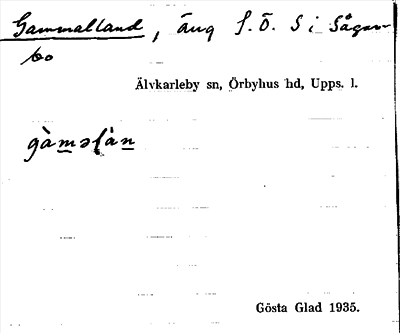 Gammalland, äng S.Ö. S i Sågar-
bo
Älvkarleby sn, Örbyhus hd, Upps. l.
gàməlán
Gösta Glad 1935.